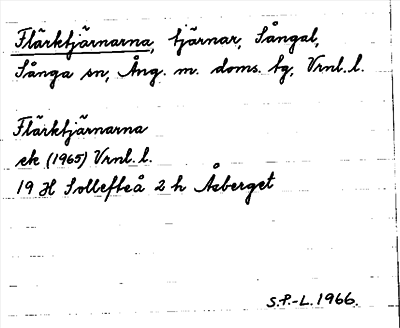 Flärktjärnarna, tjärnar, Sångal,
Sånga sn, Ång. m. doms. bg, Vrnl. l.
Flärktjärnarna
ek (1965) Vrnl. l.
19 H Sollefteå 2 h Åsberget
S.P.-L. 1966.